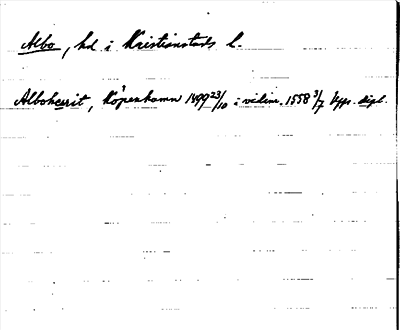 Albo, hd i Kristianstads l.
Albohærit, Köpenhamn 1499 23/10 i vidim. 1558 3/7 Upps. dipl.